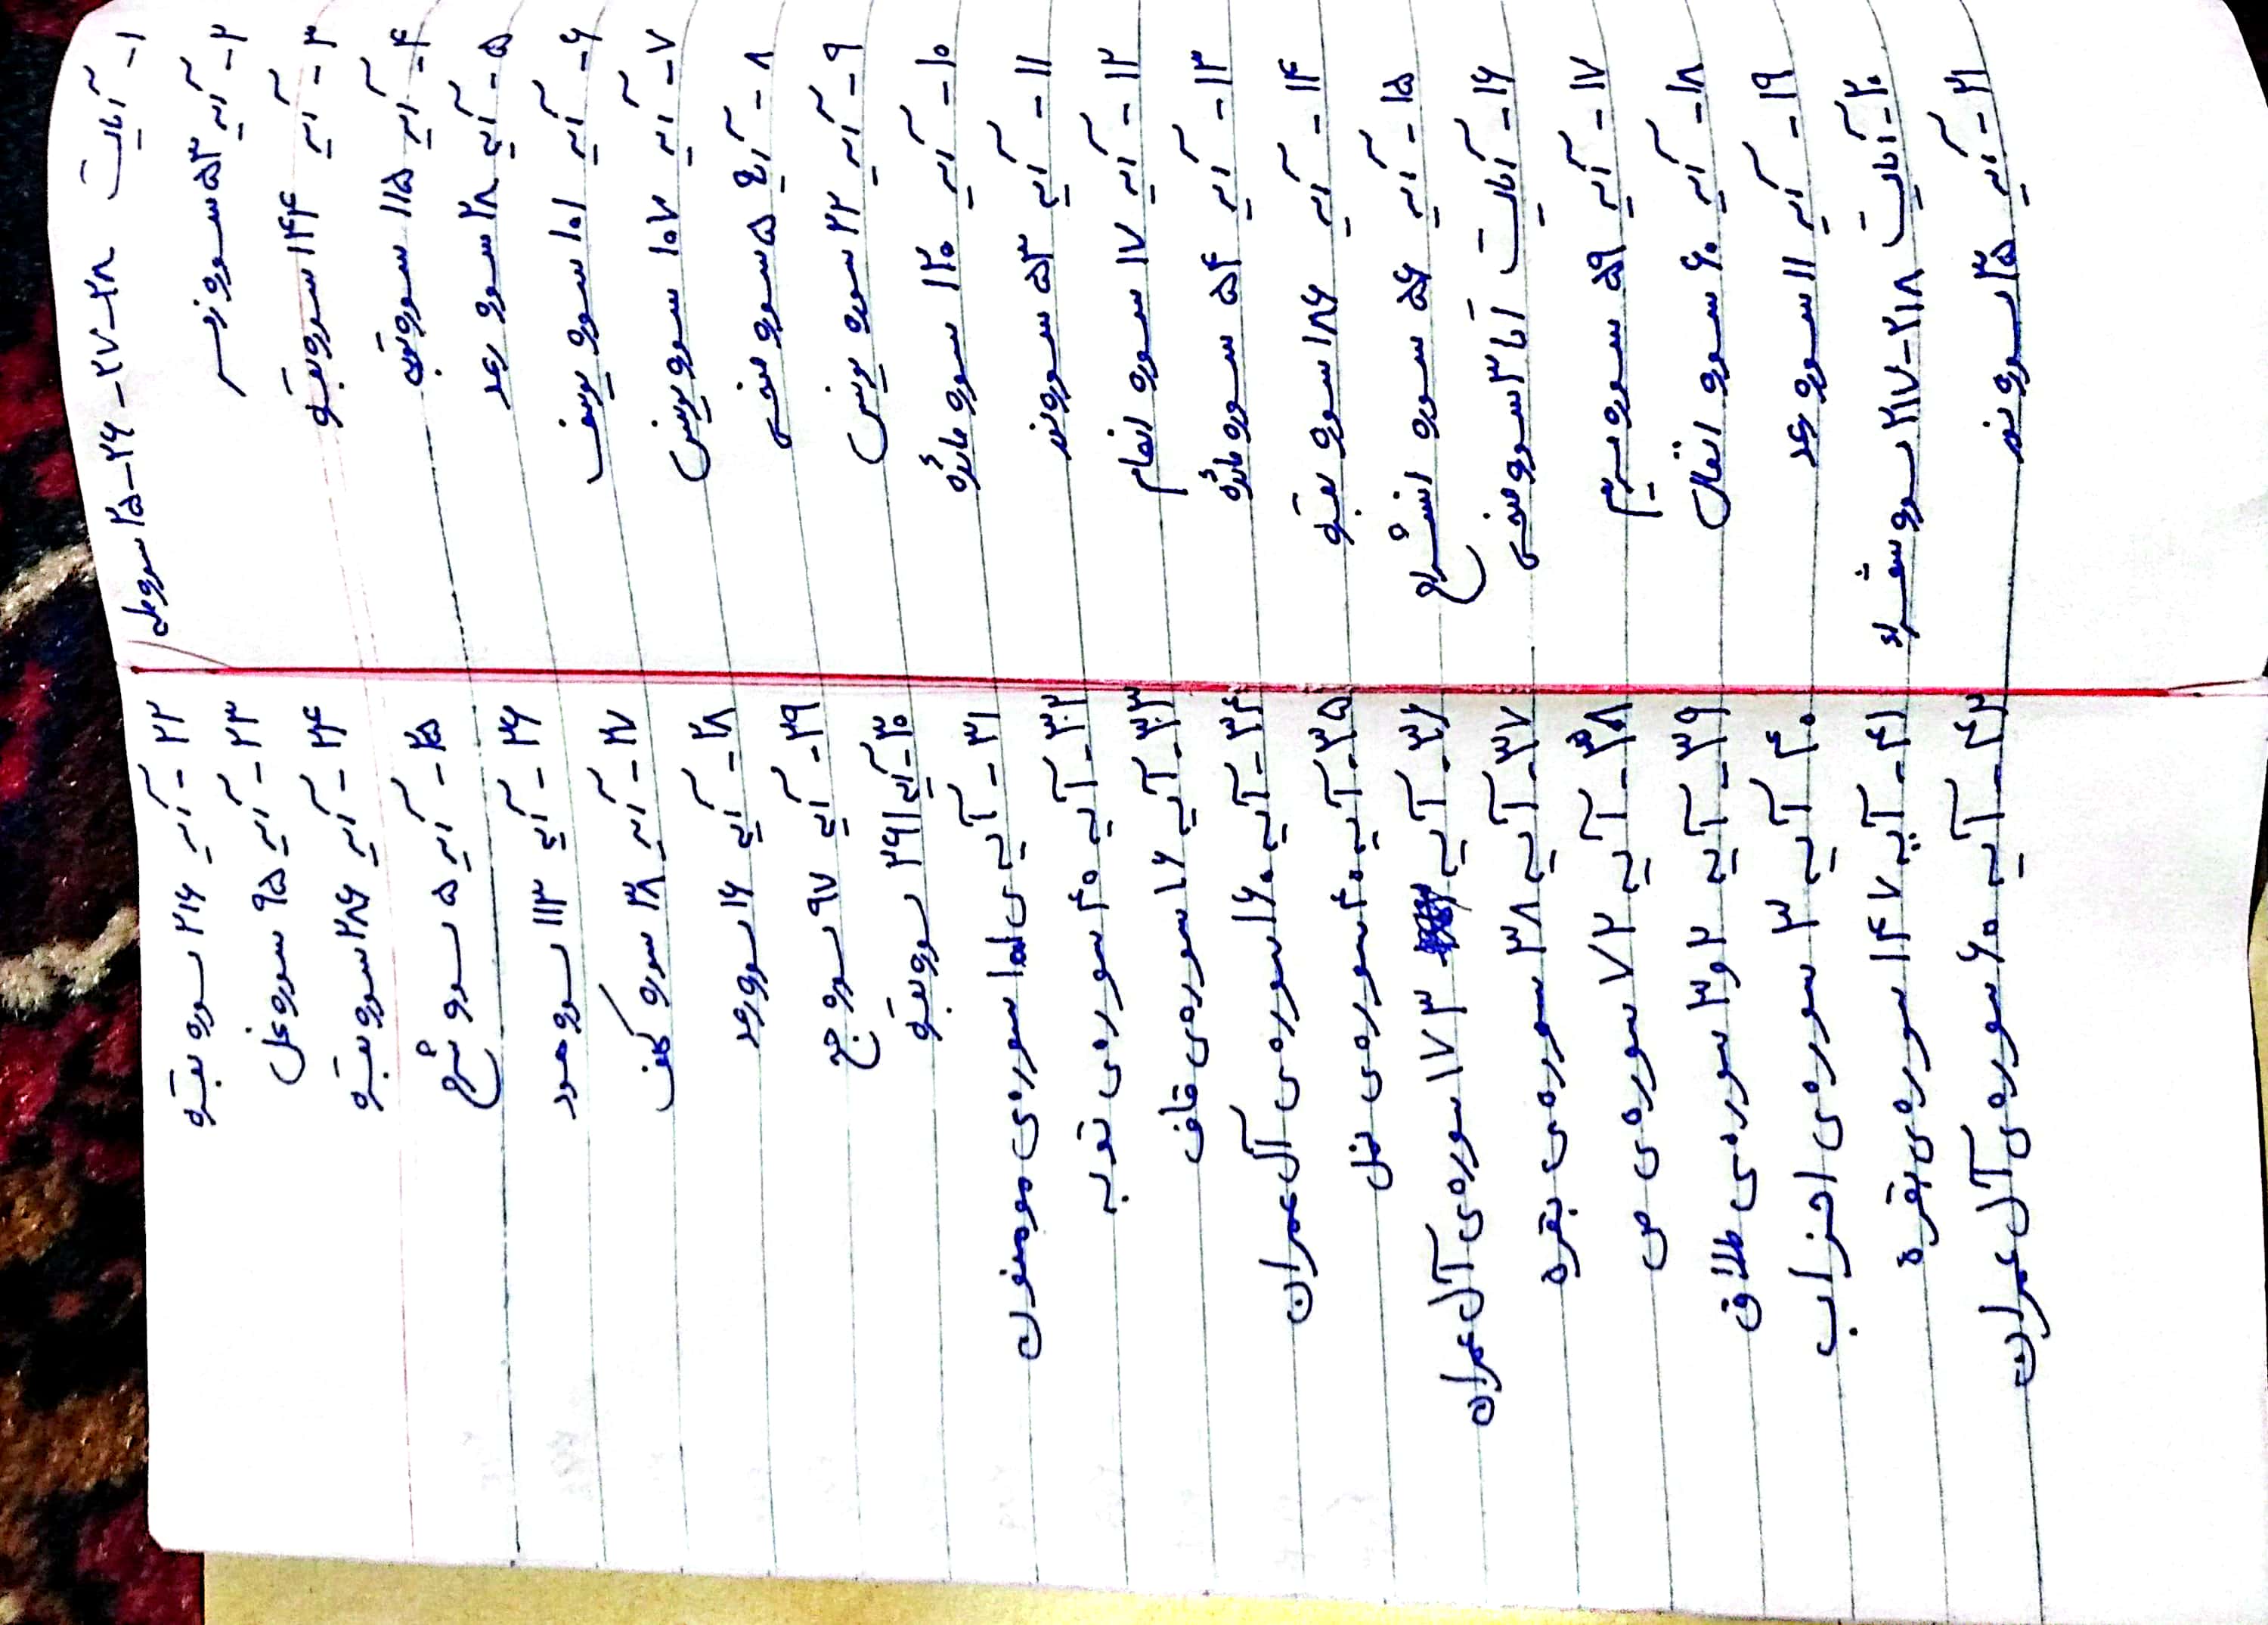 ۱- آیات ۲۸-۲۷-۲۶-۲۵ سوره طه
۲- آیه ۵۳ سوره زمر
۳- آیه ۱۴۴ سوره بقره
۴- آیه ۱۱۵ سوره توبه
۵- آیه ۲۸ سوره رعد
۶- آیه ۱۰۱ سوره یوسف
۷- آیه ۱۰۷ سوره یونس
۸- آیه ۵ سوره ضحی
۹- آیه ۲۲ سوره یونس
۱۰- آیه ۱۲۰ سوره مائده
۱۱- آیه ۵۳ سوره
۱۲- آیه ۱۷ سوره انعام
۱۳- آیه ۵۴ سوره مائده
۱۴- آیه ۱۸۶ سوره بقره
۱۵- آیه ۵۶ سوره انشرح
۱۶- آیات ۱تا۳ سوره ضحی
۱۷- آیه ۵۹ سوره مریم
۱۸- آیه ۶۰ سوره انفال
۱۹- آیه ۱۱ سوره رعد
۲۰- آیات ۲۱۸-۲۱۷ سوره شعراء
۲۱- آیه ۳۵ سوره نور
۲۲- آیه ۲۱۶ سوره بقره
۲۳- آیه ۹۵ سوره نحل
۲۴- آیه ۲۸۶ سوره بقره
۲۵- آیه ۵ سوره شرح
۲۶- آیه ۱۱۳ سوره هود
۲۷- آیه ۳۸ سوره کهف
۲۸- آیه ۱۶ سوره رعد
۲۹- آیه ۹۷ سوره حج
۳۰- آیه ۲۶۱ سوره بقره
۳۱- آیه ی سوره ی مومنون
۳۲- آیه ۴۰ سوره ی توبه
۳۳- آیه ۱۶ سوره ی قاف
۳۴- آیه ۱۶۰ سوره ی آل عمران
۳۵- آیه ۴۰ سوره ی نمل
۳۶- آیه ۱۷۳ سوره ی آل عمران
۳۷- آیه ۳۸ سوره ی بقره
۳۸- آیه ۷۲ سوره ی ص
۳۹- آیه ۲و۳ سوره ی طلاق
۴۰- آیه ۳ سوره ی احزاب
۴۱- آیه ۱۴۷ سوره ی بقره
۴۲- آیه ۶۰ سوره ی آل عمران